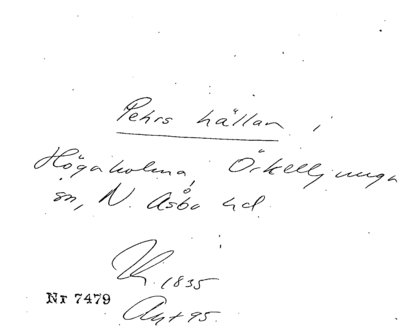 Pehrs hällan i
Högaholma, Örkelljunga
sn, N. Åsbo hd.
1835
Nr 7479
Ant 95.